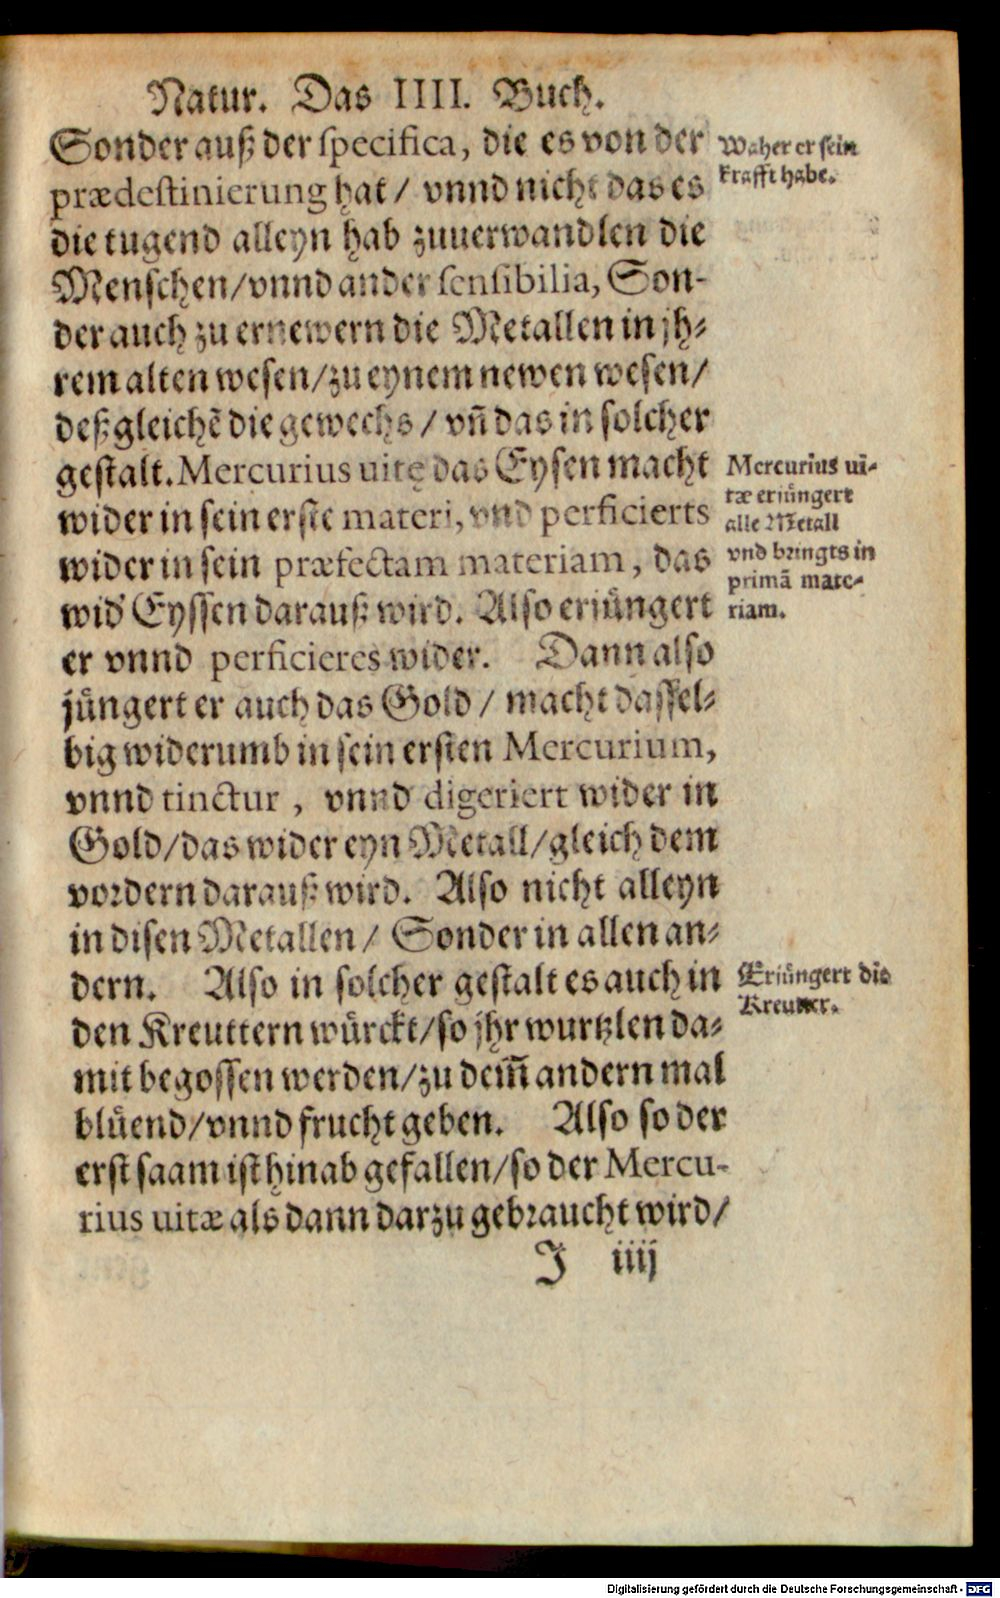 Natur. Das IIII. Buch.
Sonder auß der specifica, die es von der
prædestinierung hat / vnnd nicht das es
die tugend alleyn hab zuuerwandlen die
Menschen/vnnd ander sensibilia, Son-
der auch zu ernewern die Metallen in jh-
rem alten wesen/zu eynem newen wesen/
deßgleichẽ die gewechs / vñ das in solcher
gestalt. Mercurius uitę das Eysen macht
wider in sein erste materi, vnd perficierts
wider in sein præfectam materiam, das
wid' Eyssen darauß wird. Also erjüngert
er vnnd perficieres wider. Dann also
jüngert er auch das Gold / macht dassel-
big widerumb in sein ersten Mercurium,
vnnd tinctur , vnnd digeriert wider in
Gold/das wider eyn Metall/gleich dem
vordern darauß wird. Also nicht alleyn
in disen Metallen / Sonder in allen an-
dern. Also in solcher gestalt es auch in
den Kreuttern würckt/so jhr wurtzlen da-
mit begossen werden/zu dem̃ andern mal
blüend/vnnd frucht geben. Also so der
erst saam ist hinab gefallen/so der Mercu-
rius uitæ als dann darzu gebraucht wird/
J iiij
Waher er sein
krafft habe.
Mercurius ui-
tæ erjüngert
alle Metall
vnd bringts in
primã mate-
riam.
Erjüngert die
Kreutter.
Digitalisierung gefördert durch die Deutsche Forschungsgemeinschaft - DFG